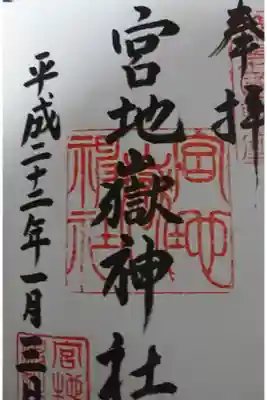 奉拝
宮地嶽神社
平成二十二年一月三日
宮地嶽神社